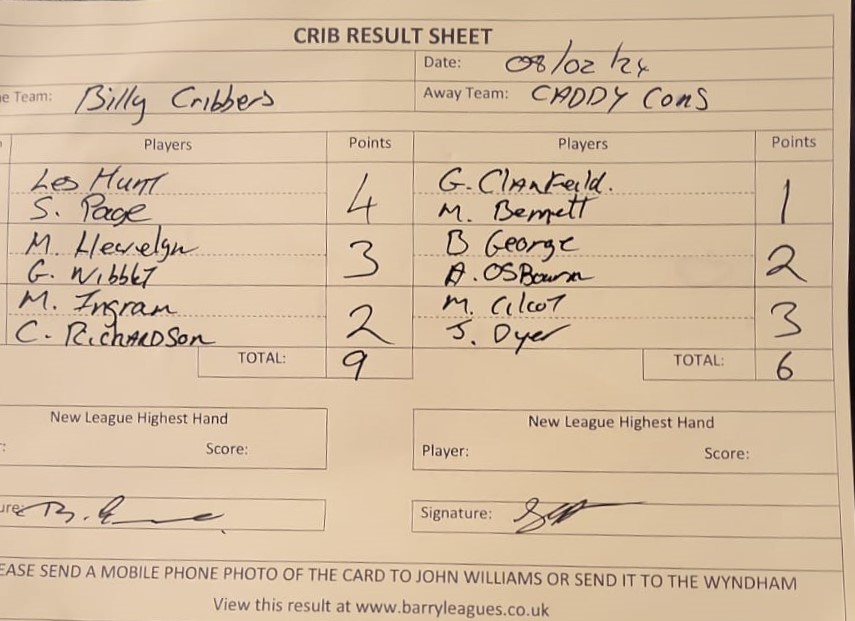 CRIB RESULT SHEET
Date: 08/02/24
e Team: Billy Cribbers Away Team: CADDY CONS
Players Points Players Points
Les Hunt G. Clanfeild.
S. Page 4 M. Bennett 1
M. Llewelyn B George
G. Wibblet 3 A. OSBourn 2
M. Ingram M. Cilcot
C. RichARDSon 2 J. Dyer 3
TOTAL: 9 TOTAL: 6
New League Highest Hand New League Highest Hand
Score: Player: Score:
ure: Signature:
EASE SEND A MOBILE PHONE PHOTO OF THE CARD TO JOHN WILLIAMS OR SEND IT TO THE WYNDHAM
View this result at www.barryleagues.co.uk